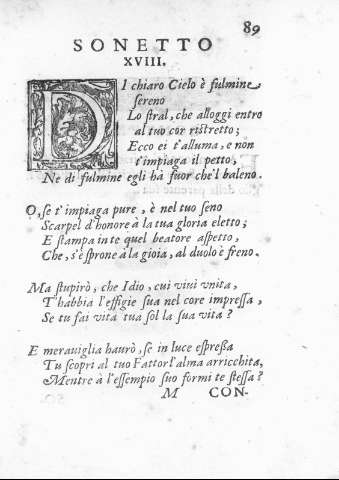 89
SONETTO
XVIII.
DI chiaro Cielo è fulmine
sereno
Lo stral, che alloggi entro
al tuo cor ristretto;
Ecco ei t'alluma, e non
t'impiaga il petto,
Ne di fulmine egli hà fuor che'l baleno.
O, se t'impiaga pure, è nel tuo seno
Scarpel d'honore à la tua gloria eletto;
E stampa in te quel beatore aspetto,
Che, s'è sprone à la gioia, al duolo è freno.
Ma stupirò, che Idio, cui viui vnita,
T'habbia l'effigie sua nel core impressa,
Se tu fai vita tua sol la sua vita?
E merauiglia haurò, se in luce espressa
Tu scopri al tuo Fattor l'alma arricchita,
Mentre à l'essempio suo formi te stessa?
M CON-